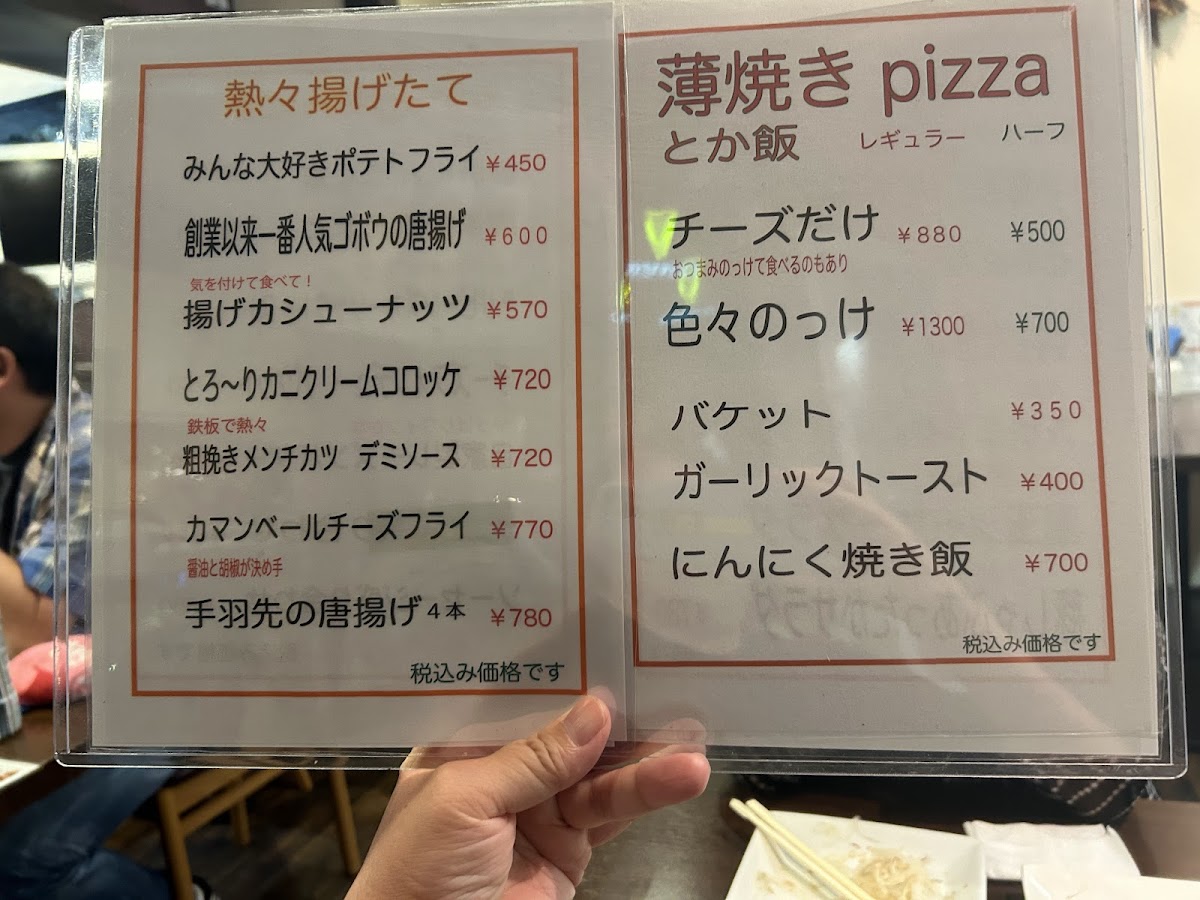 熱々揚げたて
みんな大好きポテトフライ ¥450
創業以来一番人気ゴボウの唐揚げ ¥600
気を付けて食べて！
揚げカシューナッツ ¥570
とろ～りカニクリームコロッケ ¥720
鉄板で熱々
粗挽きメンチカツ デミソース ¥720
カマンベールチーズフライ ¥770
醤油と胡椒が決め手
手羽先の唐揚げ4本 ¥780
税込み価格です
薄焼き pizza
とか飯 レギュラー ハーフ
チーズだけ ¥880 ¥500
おつまみのっけて食べるのもあり
色々のっけ ¥1300 ¥700
バケット ¥350
ガーリックトースト ¥400
にんにく焼き飯 ¥700
税込み価格です